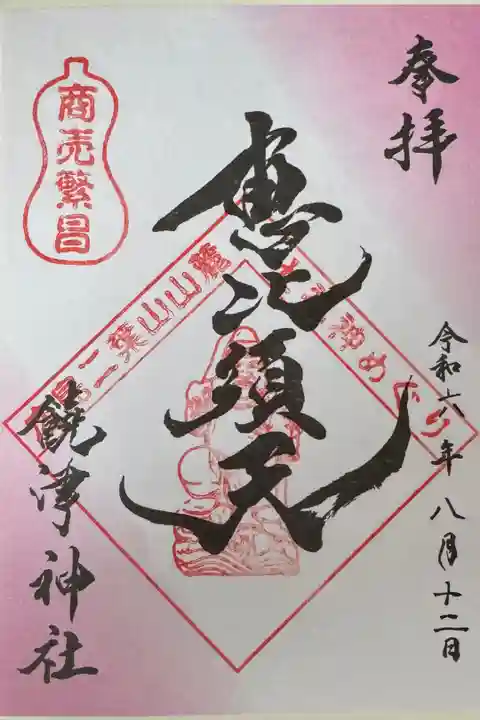 奉拝
商売繁昌
恵比須天
二葉山山麓
神めぐり
令和六年八月十二日
饒津神社